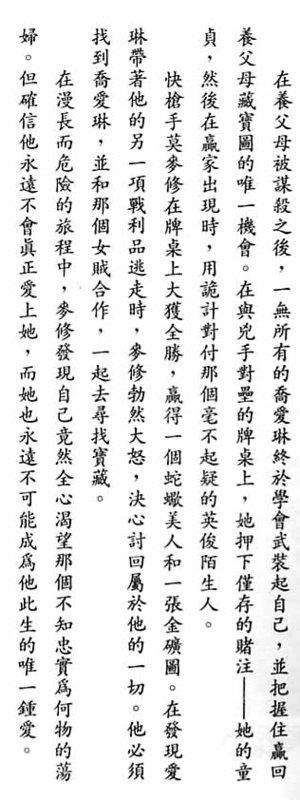 在養父母被謀殺之後，一無所有的喬愛琳終於學會武裝起自己，並把握住贏回
養父母藏寶圖的唯一機會。在與兇手對壘的牌桌上，她押下僅存的賭注——她的童
貞，然後在贏家出現時，用詭計對付那個毫不起疑的英俊陌生人。
快槍手莫麥修在牌桌上大獲全勝，贏得一個蛇蠍美人和一張金礦圖。在發現愛
琳帶著他的另一項戰利品逃走時，麥修勃然大怒，決心討回屬於他的一切。他必須
找到喬愛琳，並和那個女賊合作，一起去尋找寶藏。
在漫長而危險的旅程中，麥修發現自己竟然全心渴望那個不知忠實爲何物的蕩
婦。但確信他永遠不會眞正愛上她，而她也永遠不可能成爲他此生的唯一鍾愛。